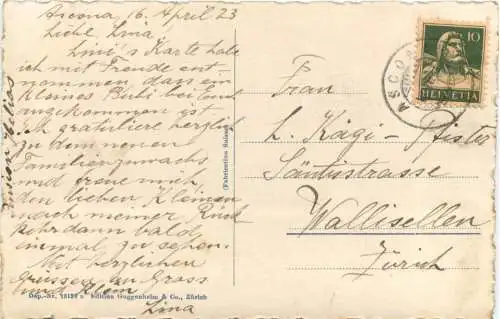 Ascona 16. April 23
Liebe Lina
Lini's Karte habe
ich mit Freude ent
nommen dass ein
kleines Bubi bei Euch
angekommen ist.
Ich gratuliere herzlich
zu dem neuen
Familienzuwachs
und freue mich
den lieben Kleinen
nach meiner Rück
kehr dann bald
einmal zu sehen.
Mit herzlichen
Grüssen an Gross
und Klein
Lina
Dep.-Nr. Edition Guggenheim & Co., Zürich
(Fabrication Suisse)
10
HELVETIA
ASCO
Frau
L. Kägi-Pfister
Säntisstrasse
Wallisellen
Zürich